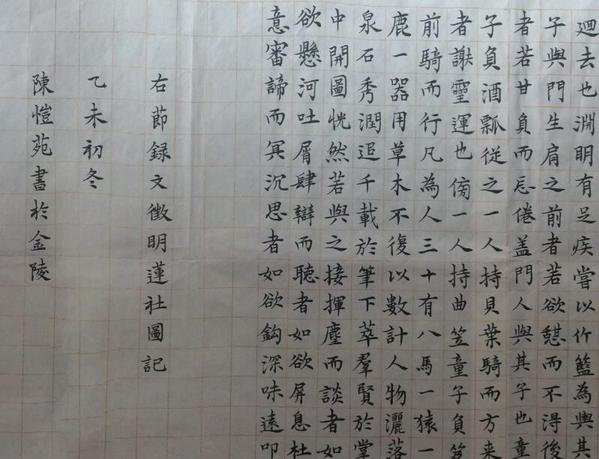 迴去也淵明有足疾嘗以竹籃為輿其
子與門生肩之前者若欲憇而不得後
者若甘負而忘倦盖門人與其子也童
子負酒瓢從之一人持貝葉騎而方来
者謝靈運也傍一人持曲笠童子負笈
前騎而行凡為人三十有八馬一猿一
鹿一器用草木不復以數計人物灑落
泉石秀潤追千載於筆下萃羣賢於掌
中開圖恍然若與之接揮塵而談者如
欲懸河吐屑肆辯而聽者如欲屏息杜
意審諦而冥沉思者如欲鈎深味遠叩
右節録文徵明蓮社圖記
乙未初冬
陳愷苑書於金陵